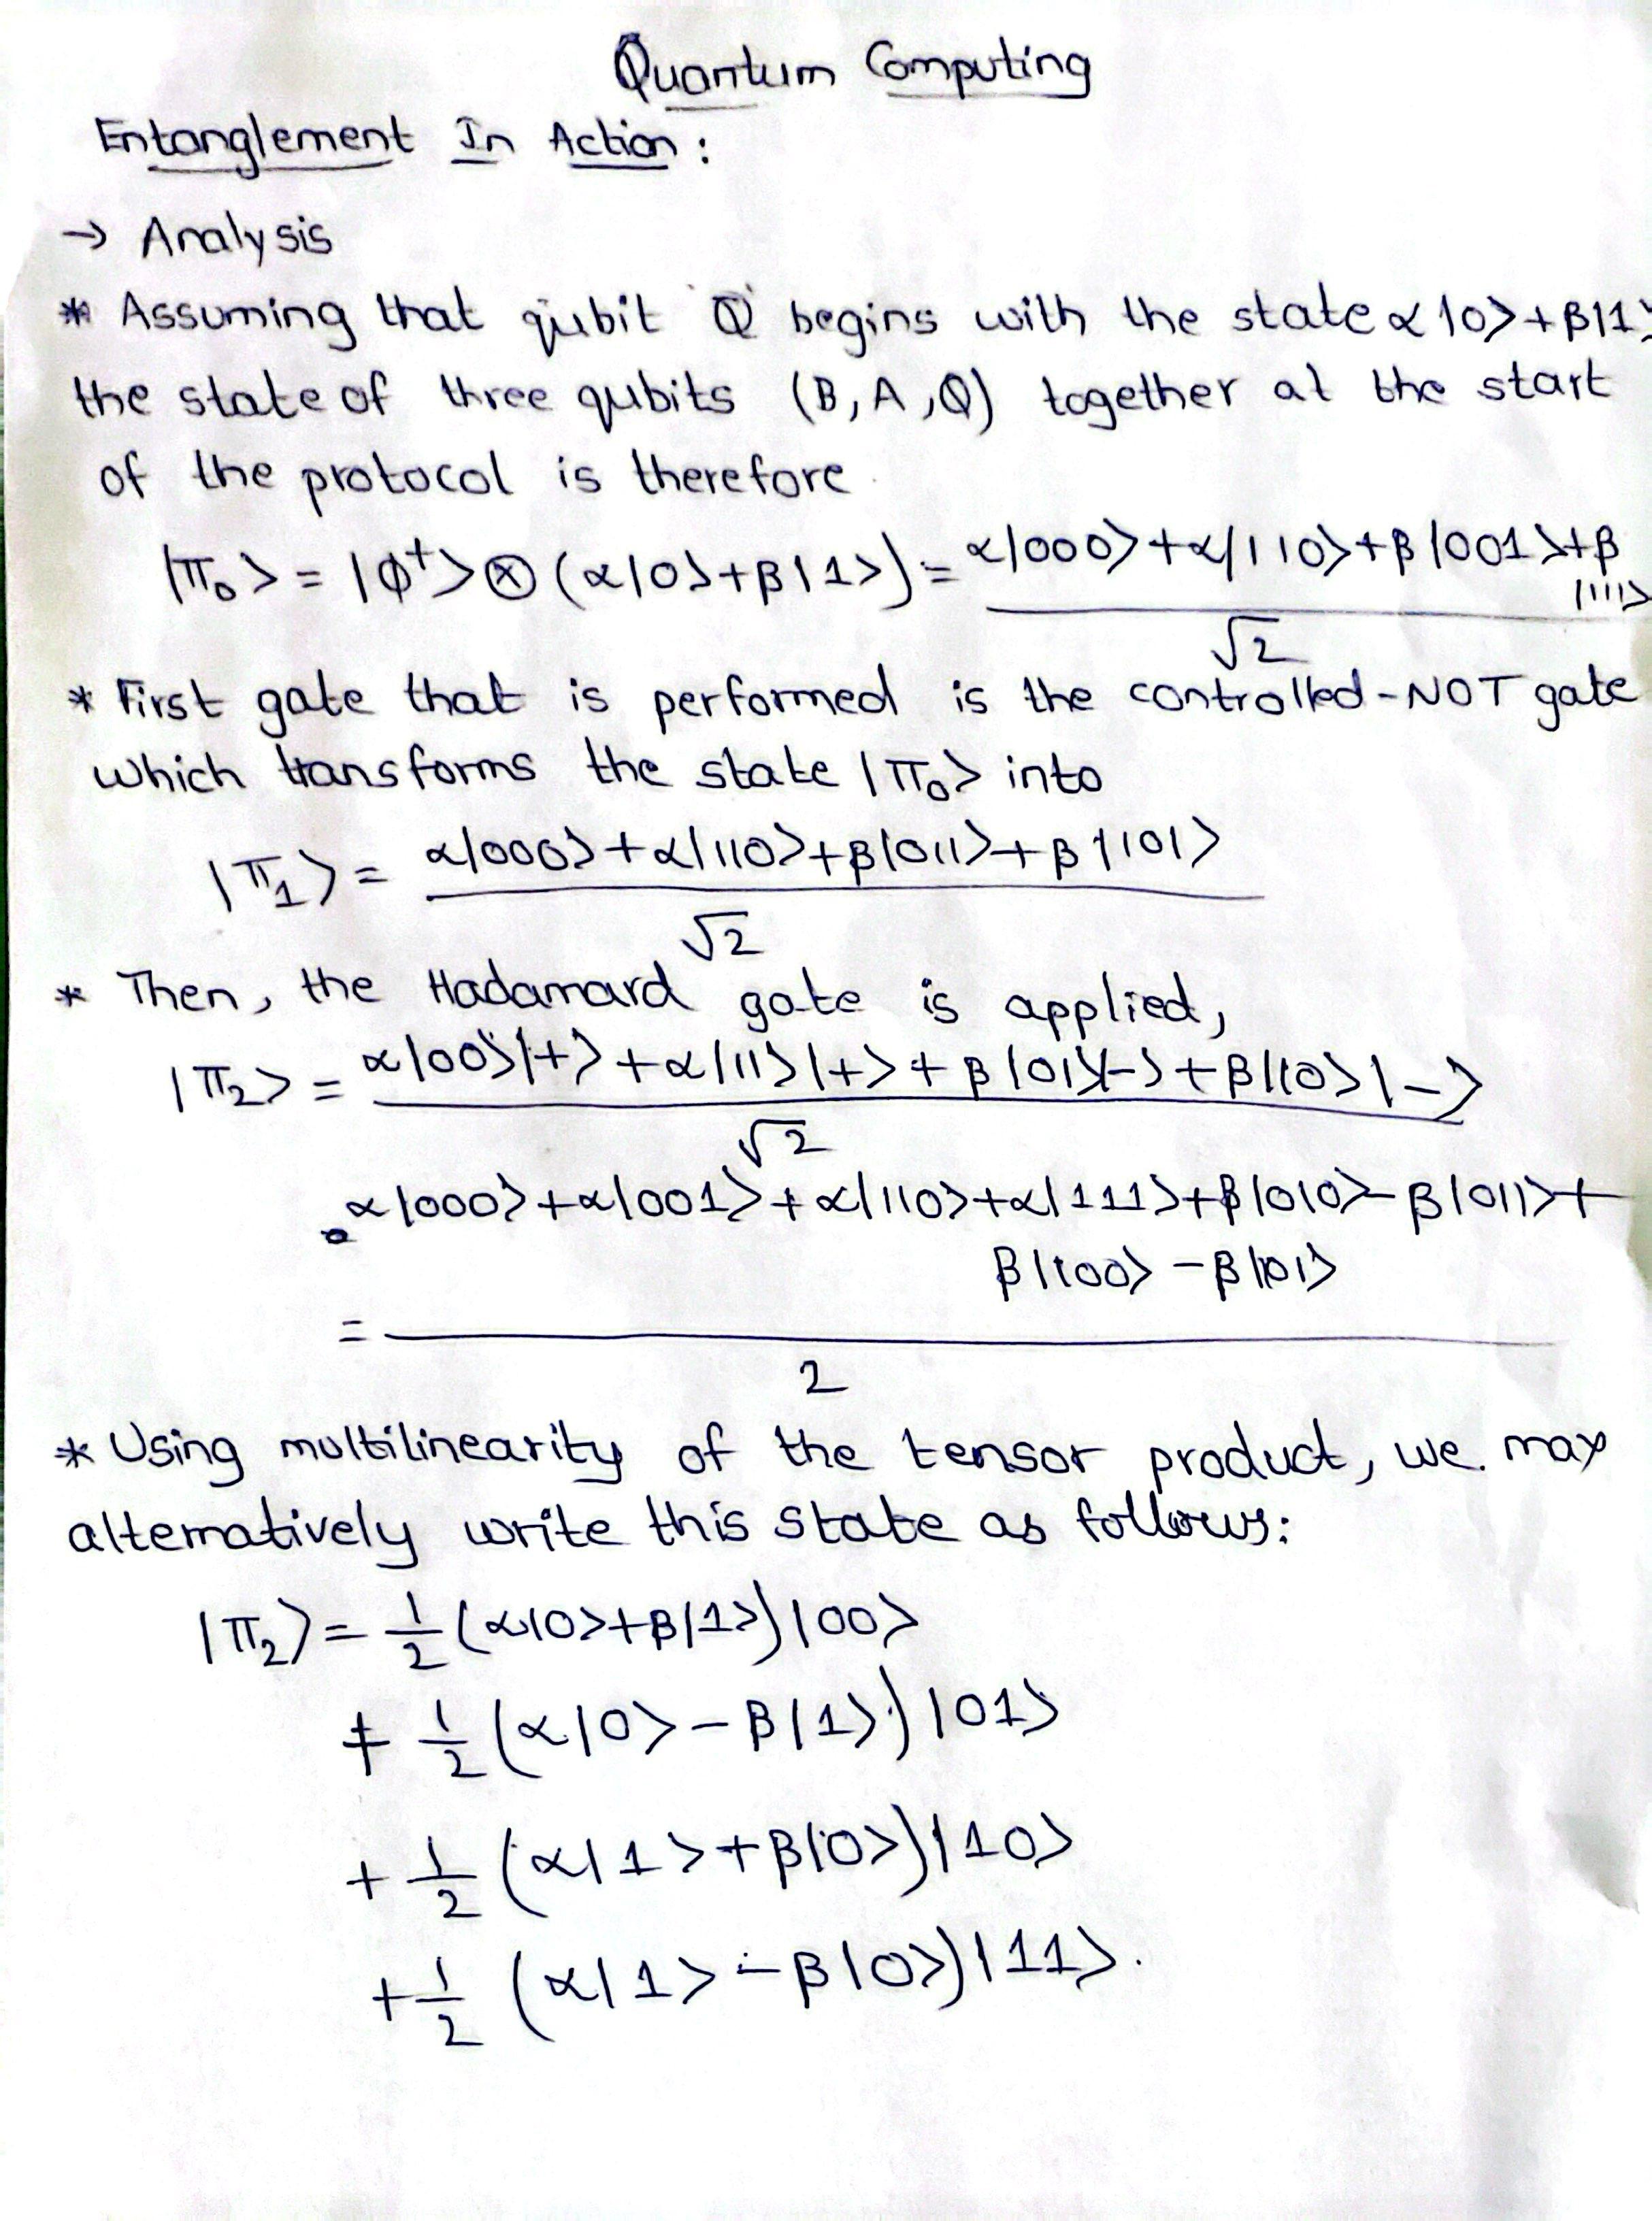 Quantum Computing
Entanglement In Action:
→ Analysis
* Assuming that qubit Q begins with the state α|0⟩+β|1⟩
the state of three qubits (B, A, Q) together at the start
of the protocol is therefore
|π₀⟩ = |ϕ⁺⟩⊗(α|0⟩+β|1⟩) = α|000⟩+α|110⟩+β|001⟩+β
|111⟩
√2
* First gate that is performed is the controlled-NOT gate
which transforms the state |π₀⟩ into
|π₁⟩ = α|000⟩+α|110⟩+β|011⟩+β|101⟩
√2
* Then, the Hadamard gate is applied,
|π₂⟩ = α|00⟩|+⟩+α|11⟩|+⟩+β|01⟩|-⟩+β|10⟩|-⟩
√2
α|000⟩+α|001⟩+α|110⟩+α|111⟩+β|010⟩-β|011⟩+
β|100⟩-β|101⟩
=
2
* Using multilinearity of the tensor product, we. may
alternatively write this state as follows:
|π₂⟩ = 1/2 (α|0⟩+β|1⟩)|00⟩
+ 1/2 (α|0⟩-β|1⟩)|01⟩
+ 1/2 (α|1⟩+β|0⟩)|10⟩
+ 1/2 (α|1⟩-β|0⟩)|11⟩.